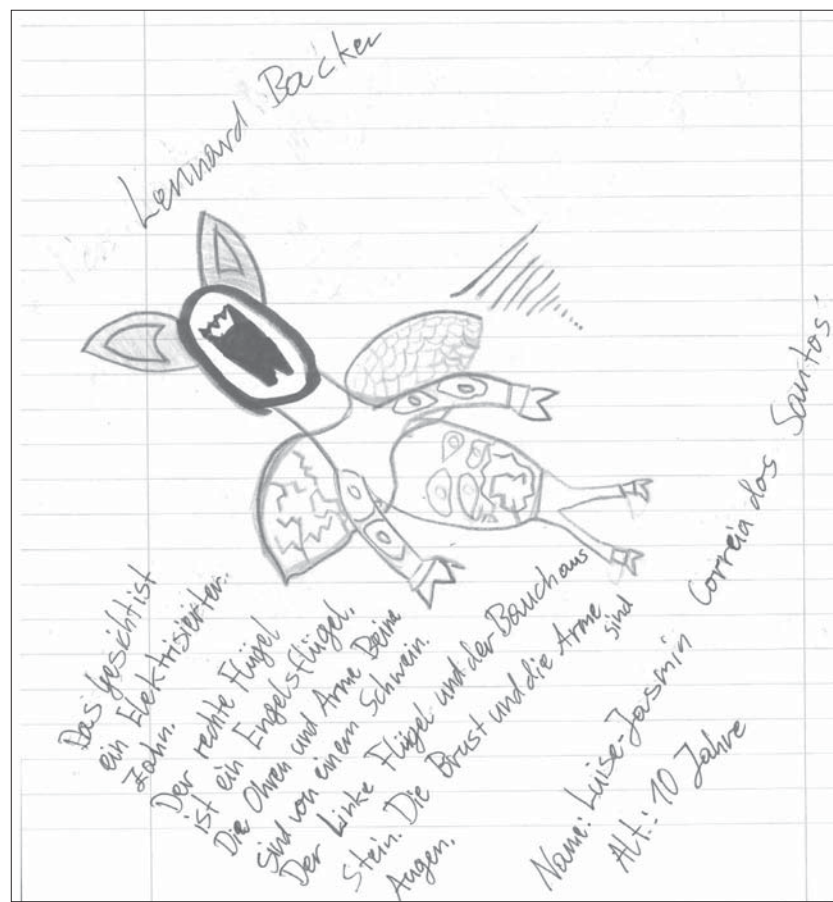 Lennard Bäcker
Das Gesicht ist
ein Elektrisierter
Zahn.
Der rechte Flügel
ist ein Engelsflügel.
Die Ohren und Arme Beine
sind von einem Schwein.
Der Linke Flügel und der Bauch aus
Stein. Die Brust und die Arme sind
Augen.
Name: Luise-Jasmin Correia dos Santos
Alt.: 10 Jahre